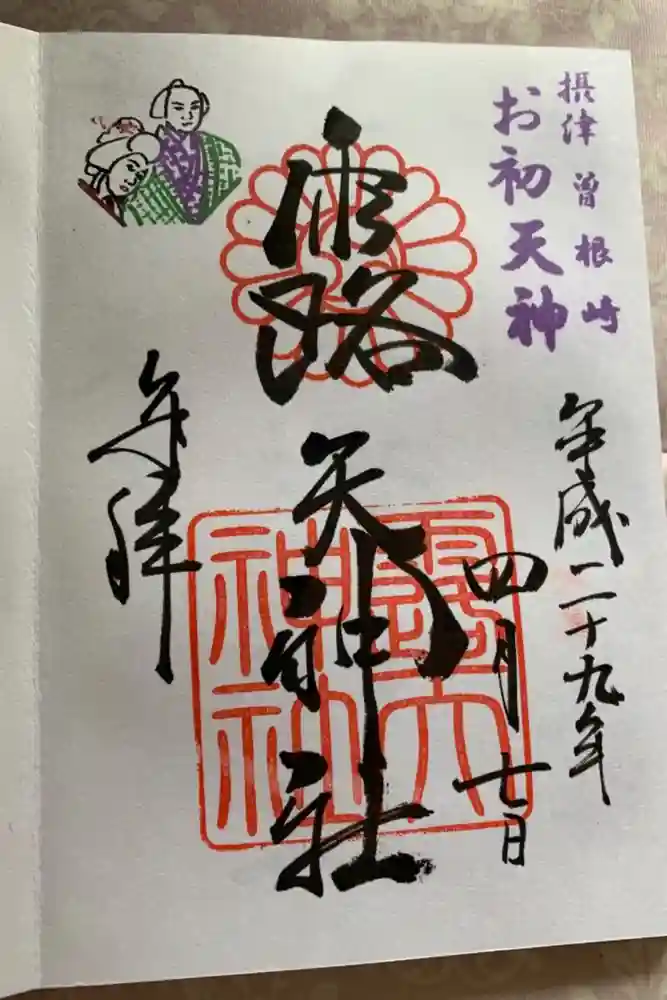 摂津 曽根崎
お初天神
平成二十九年
四月七日
露天神社
露天
神社
奉拝